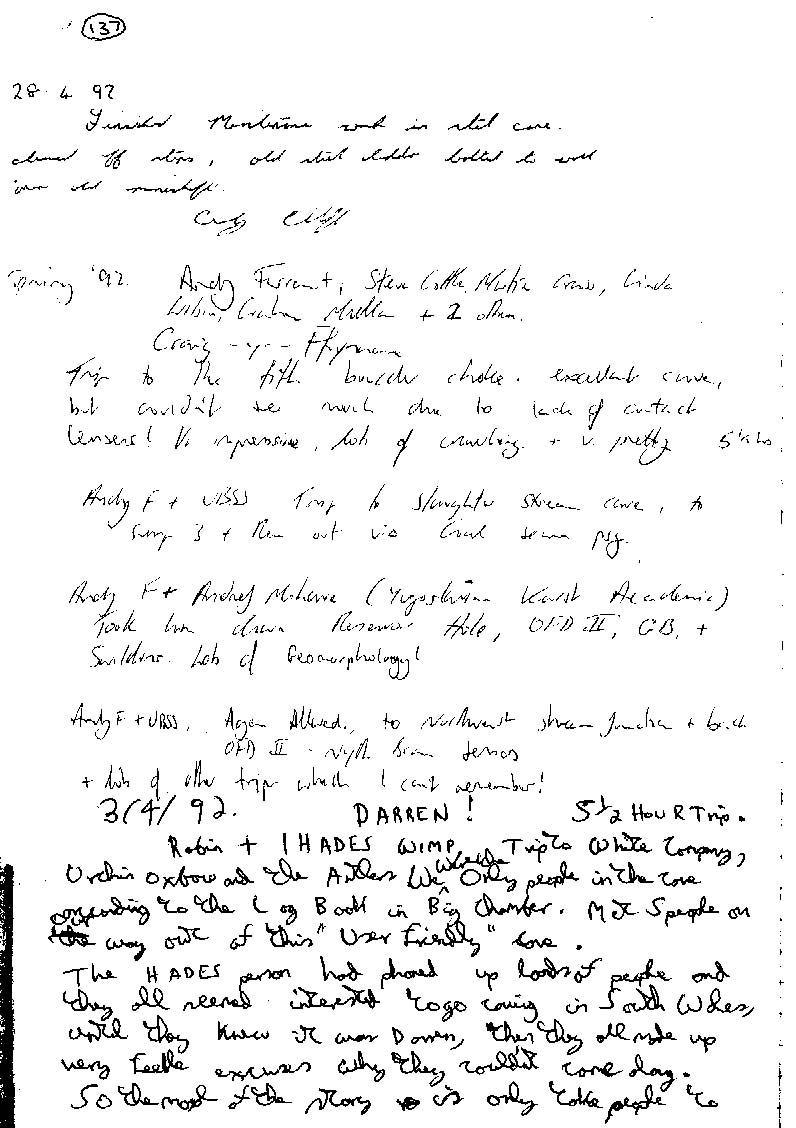 137
28. 4 92
Finished Membrane work in steel cave.
cleaned off steps, old steel ladder bolted to wall
over old
Spring '92. Andy Farrant, Steve Cottle, Martin Cross, Linda
Wilson, Graham Mullan + 2 others.
Craig - y - Ffynnon
Trip to the fifth boulder choke. excellent cave,
but couldn't see much due to lack of contact
lenses! V. impressive, lots of crawling + v. pretty 5½ hrs
Andy F + UBSS Trip to Slaughter Stream cave, to
sump 3 + then out via Coral seam psg.
Andy F + Andrej Mihevc (Yugoslavian Karst Academic)
Took him down Reservoir Hole, OFD II, GB, +
Swildons. Lots of Geomorphology!
Andy F + UBSS, Agen Allwedd, to Northwest stream junction + back
OFD II -
+ lots of other trips which I can't remember!
3/4/92. DARREN! 5 1/2 HOUR Trip.
Robin + 1 HADES WIMP, Trip to White Company,
Urchin Oxbow and the Antlers We Were the Only people in the cave
according to the Log Book in Big Chamber. Met 5 people on
the way out of this "User Friendly" cave.
The HADES person had phoned up loads of people and
they all seemed interested to go caving in South Wales,
until they knew it was Darren, then they all made up
very feeble excuses why they couldn't come along.
So the moral of the story is is only take people to